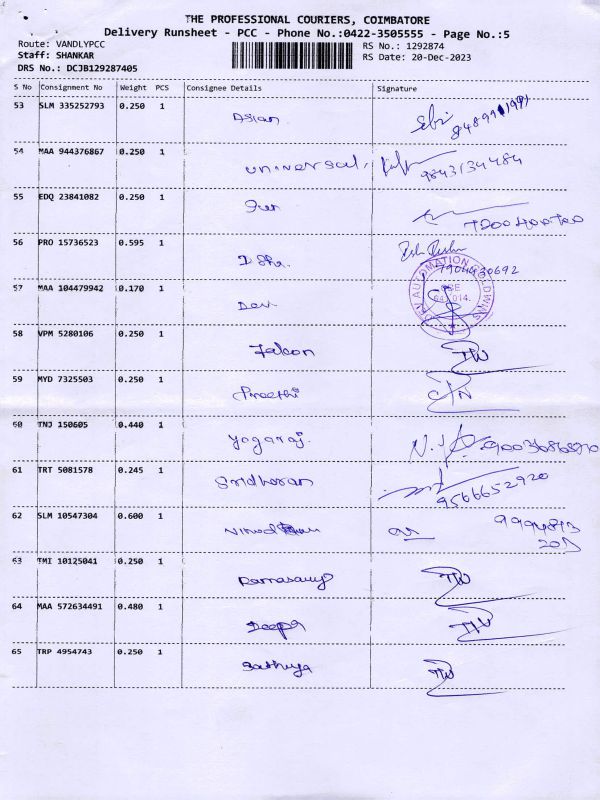 THE PROFESSIONAL COURIERS, COIMBATORE
Delivery Runsheet - PCC - Phone No.:0422-3505555 - Page No.:5
Route: VANDLYPCC RS No.: 1292874
Staff: SHANKAR RS Date: 20-Dec-2023
DRS No.: DCJB129287405
S No Consignment No Weight PCS Consignee Details Signature
53 SLM 335252793 0.250 1 Asian
54 MAA 944376867 0.250 1 universal, 9843134484
55 EDQ 23841082 0.250 1 7200400700
56 PRO 15736523 0.595 1 7904430692
57 MAA 104479942 0.170 1 Dev
58 VPM 5280106 0.250 1 Falcon
59 MYD 7325503 0.250 1 Preethi
60 TNJ 150605 0.440 1 Yogaraj.
61 TRT 5081578 0.245 1 Sridharan 9566652920
62 SLM 10547304 0.600 1
63 TMI 10125041 0.250 1 Ramasamy
64 MAA 572634491 0.480 1 Deepa
65 TRP 4954743 0.250 1 Sathiya